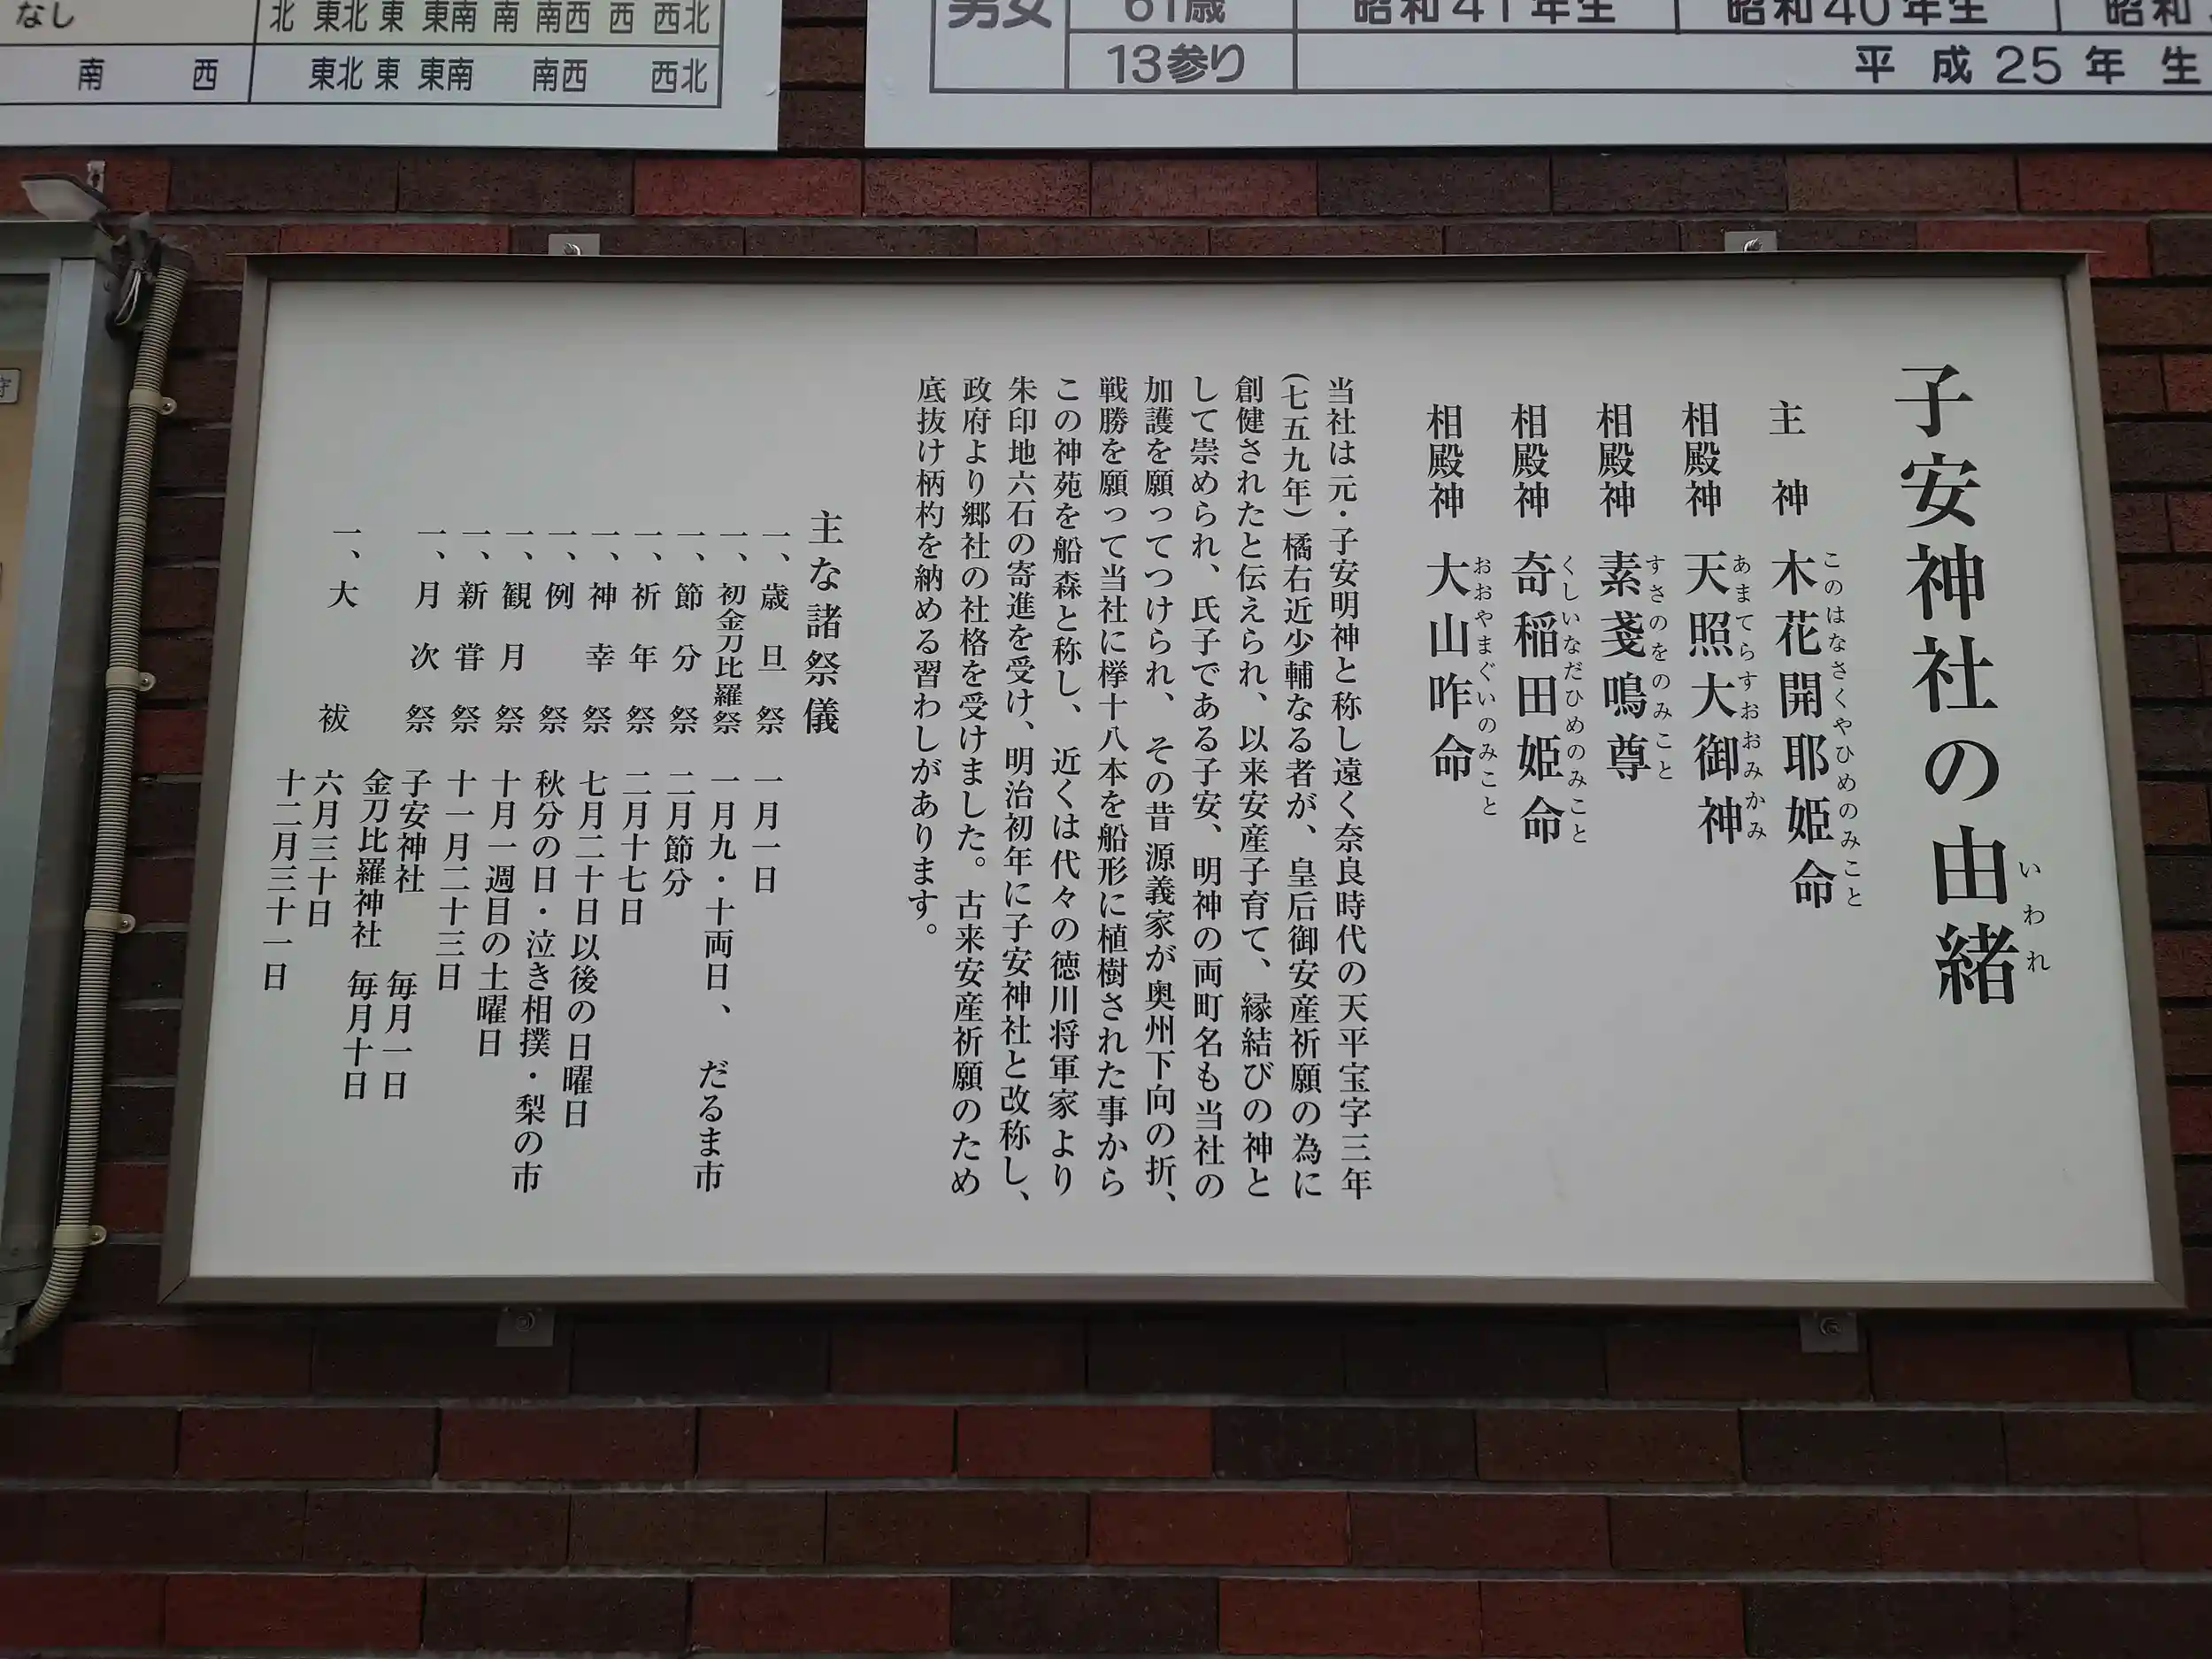 なし
北 東北 東 東南 南 南西 西 西北
南 西
東北 東 東南 南西 西北
男女
61歳
昭和41年生
昭和40年生
昭和
13参り
平成25年生
子安神社の由緒
いわれ
主 神 木花開耶姫命
このはなさくやひめのみこと
相殿神 天照大御神
あまてらすおおみかみ
相殿神 素戔鳴尊
すさのをのみこと
相殿神 奇稲田姫命
くしいなだひめのみこと
相殿神 大山咋命
おおやまぐいのみこと
当社は元・子安明神と称し遠く奈良時代の天平宝字三年
(七五九年)橘右近少輔なる者が、皇后御安産祈願の為に
創健されたと伝えられ、以来安産子育て、縁結びの神と
して崇められ、氏子である子安、明神の両町名も当社の
加護を願ってつけられ、その昔源義家が奥州下向の折、
戦勝を願って当社に欅十八本を船形に植樹された事から
この神苑を船森と称し、近くは代々の徳川将軍家より
朱印地六石の寄進を受け、明治初年に子安神社と改称し、
政府より郷社の社格を受けました。古来安産祈願のため
底抜け柄杓を納める習わしがあります。
主な諸祭儀
一、歳旦祭 一月一日
一、初金刀比羅祭 一月九・十両日、 だるま市
一、節分祭 二月節分
一、祈年祭 二月十七日
一、神幸祭 七月二十日以後の日曜日
一、例祭 秋分の日・泣き相撲・梨の市
一、観月祭 十月一週目の土曜日
一、新嘗祭 十一月二十三日
一、月次祭 子安神社 毎月一日
金刀比羅神社 毎月十日
一、大祓 六月三十日
十二月三十一日